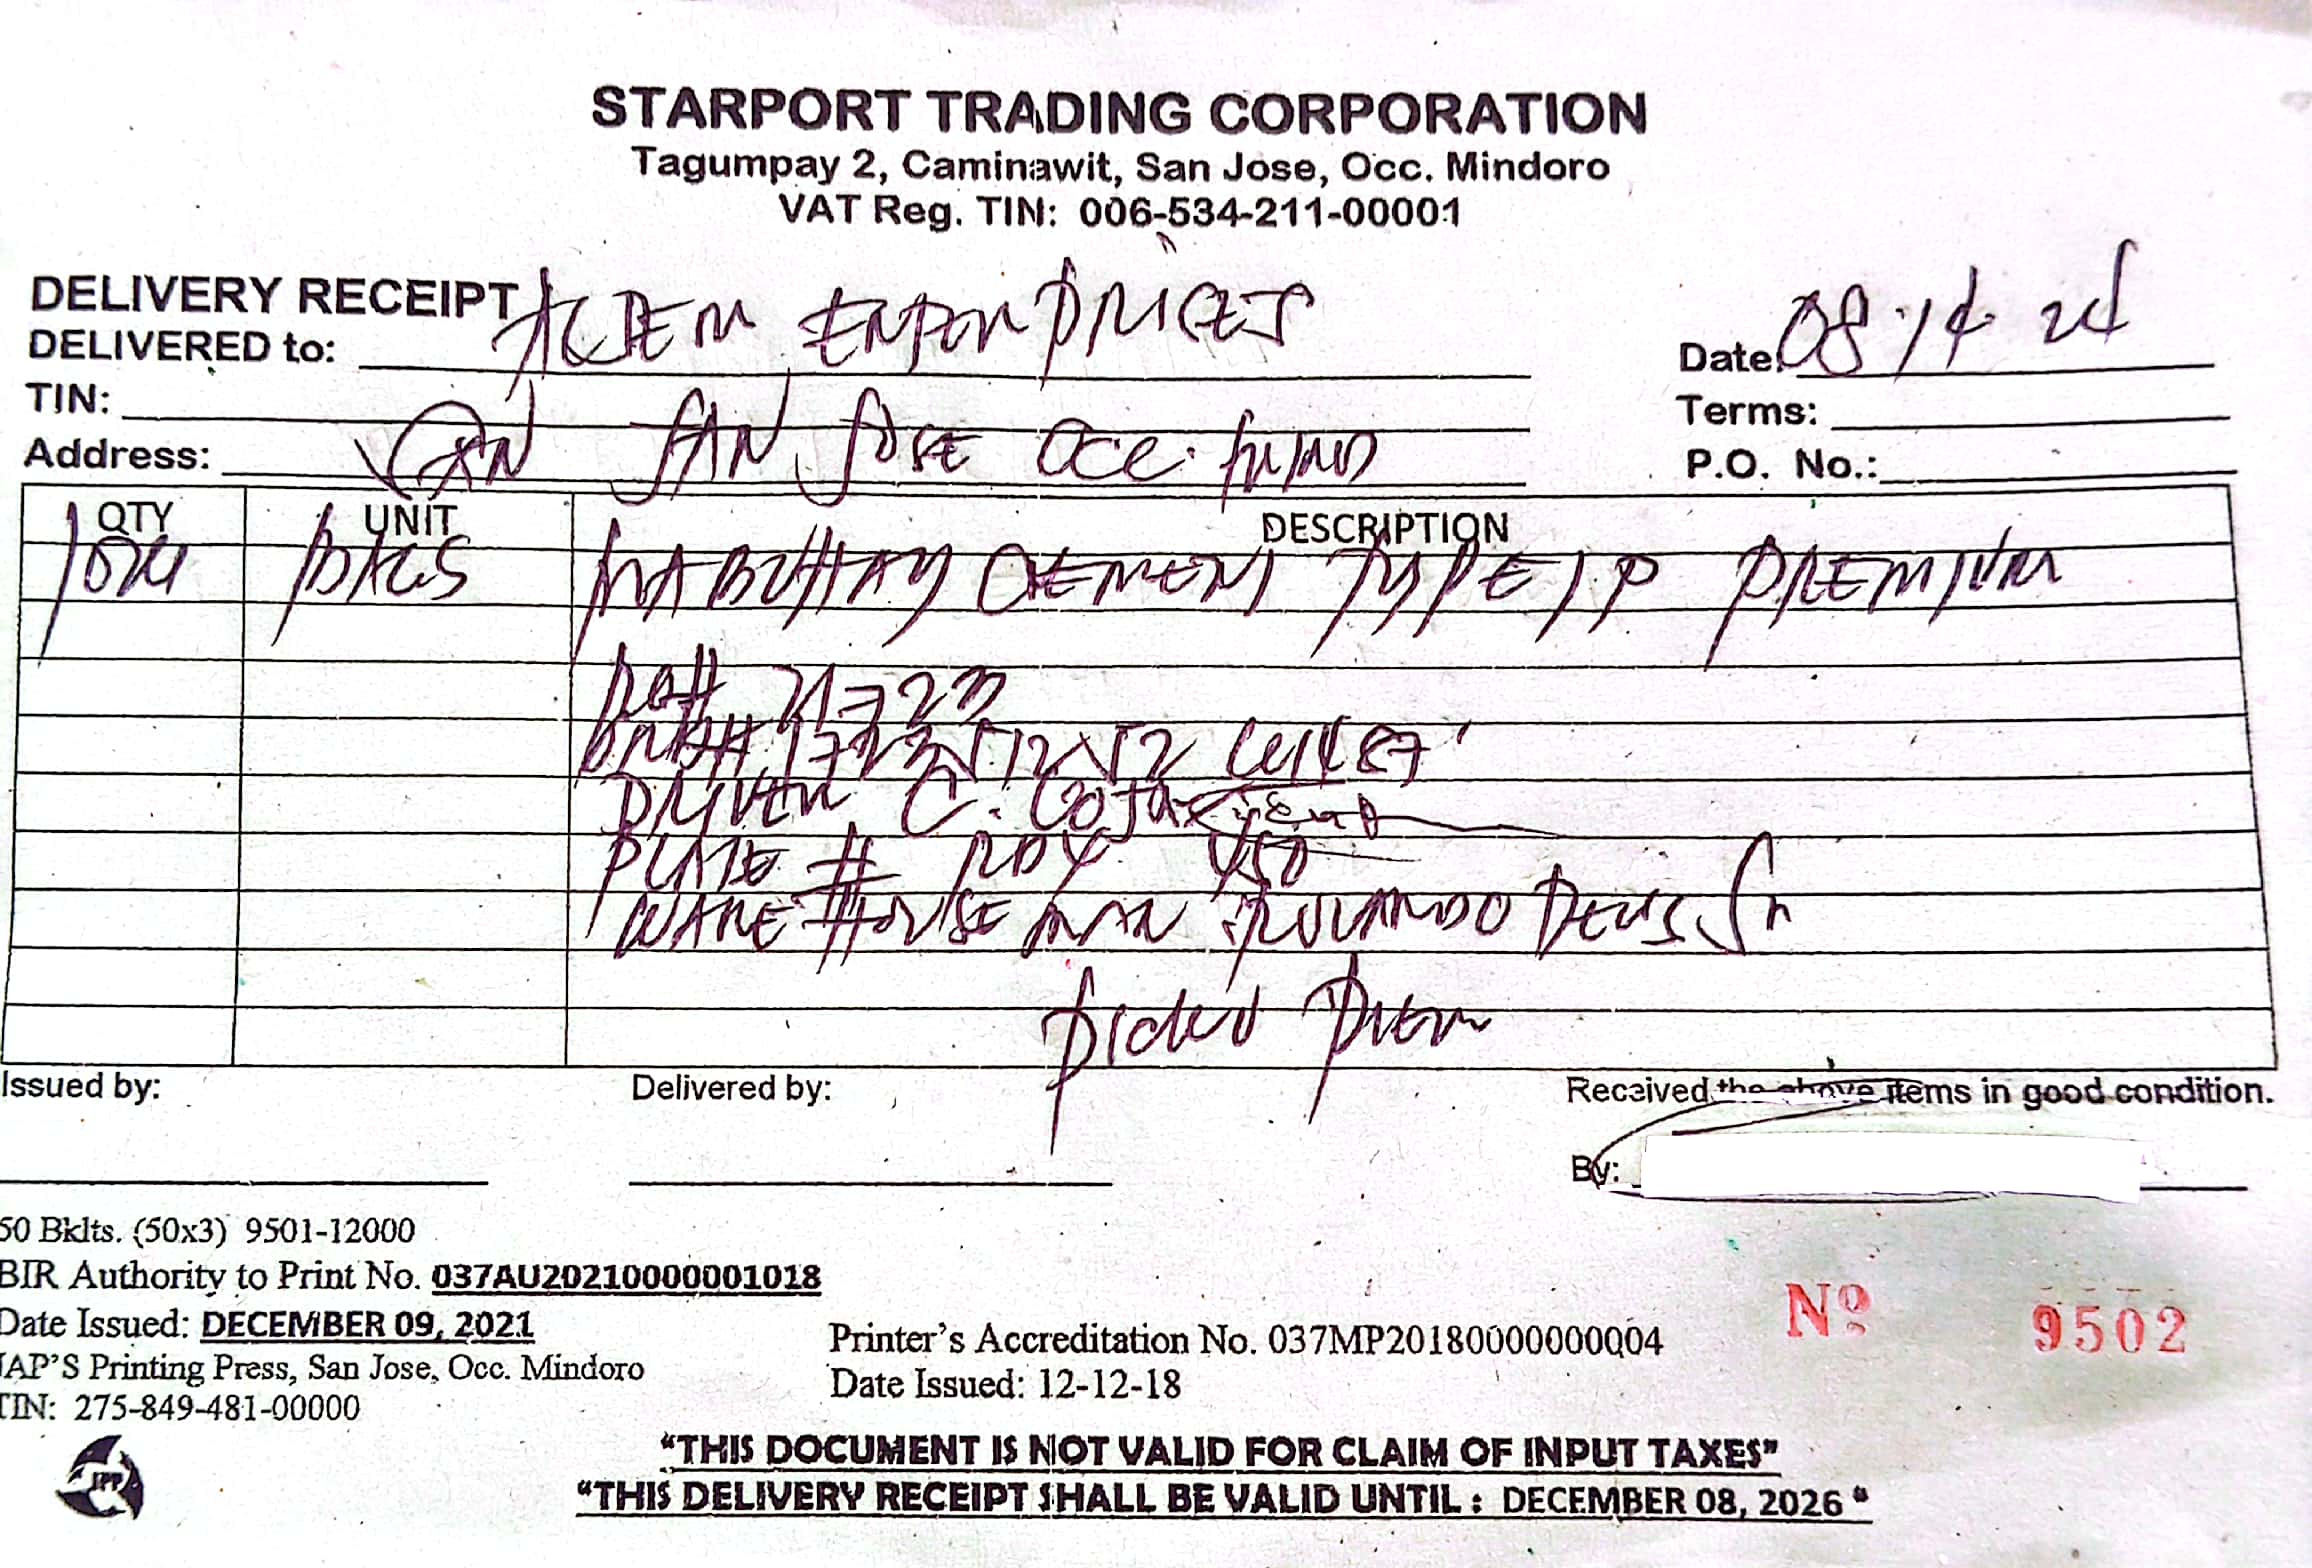 STARPORT TRADING CORPORATION
Tagumpay 2, Caminawit, San Jose, Occ. Mindoro
VAT Reg. TIN: 006-534-211-00001
DELIVERY RECEIPT
DELIVERED to: ENTERPRICES
Date: 08 14 24
TIN:
Terms:
Address: SAN JOSE OCC.
P.O. No.:
QTY UNIT DESCRIPTION
BAGS MABUHAY CEMENT TYPE 1P PREMIUM
21723
DRIVER C.
PLATE #
WARE HOUSE MAN ROLANDO
Issued by:
Delivered by:
Received the above items in good condition.
By:
50 Bklts. (50x3) 9501-12000
BIR Authority to Print No. 037AU20210000001018
Date Issued: DECEMBER 09, 2021
JAP'S Printing Press, San Jose, Occ. Mindoro
TIN: 275-849-481-00000
Printer's Accreditation No. 037MP20180000000004
Date Issued: 12-12-18
Nº 9502
JPP
"THIS DOCUMENT IS NOT VALID FOR CLAIM OF INPUT TAXES"
"THIS DELIVERY RECEIPT SHALL BE VALID UNTIL : DECEMBER 08, 2026"